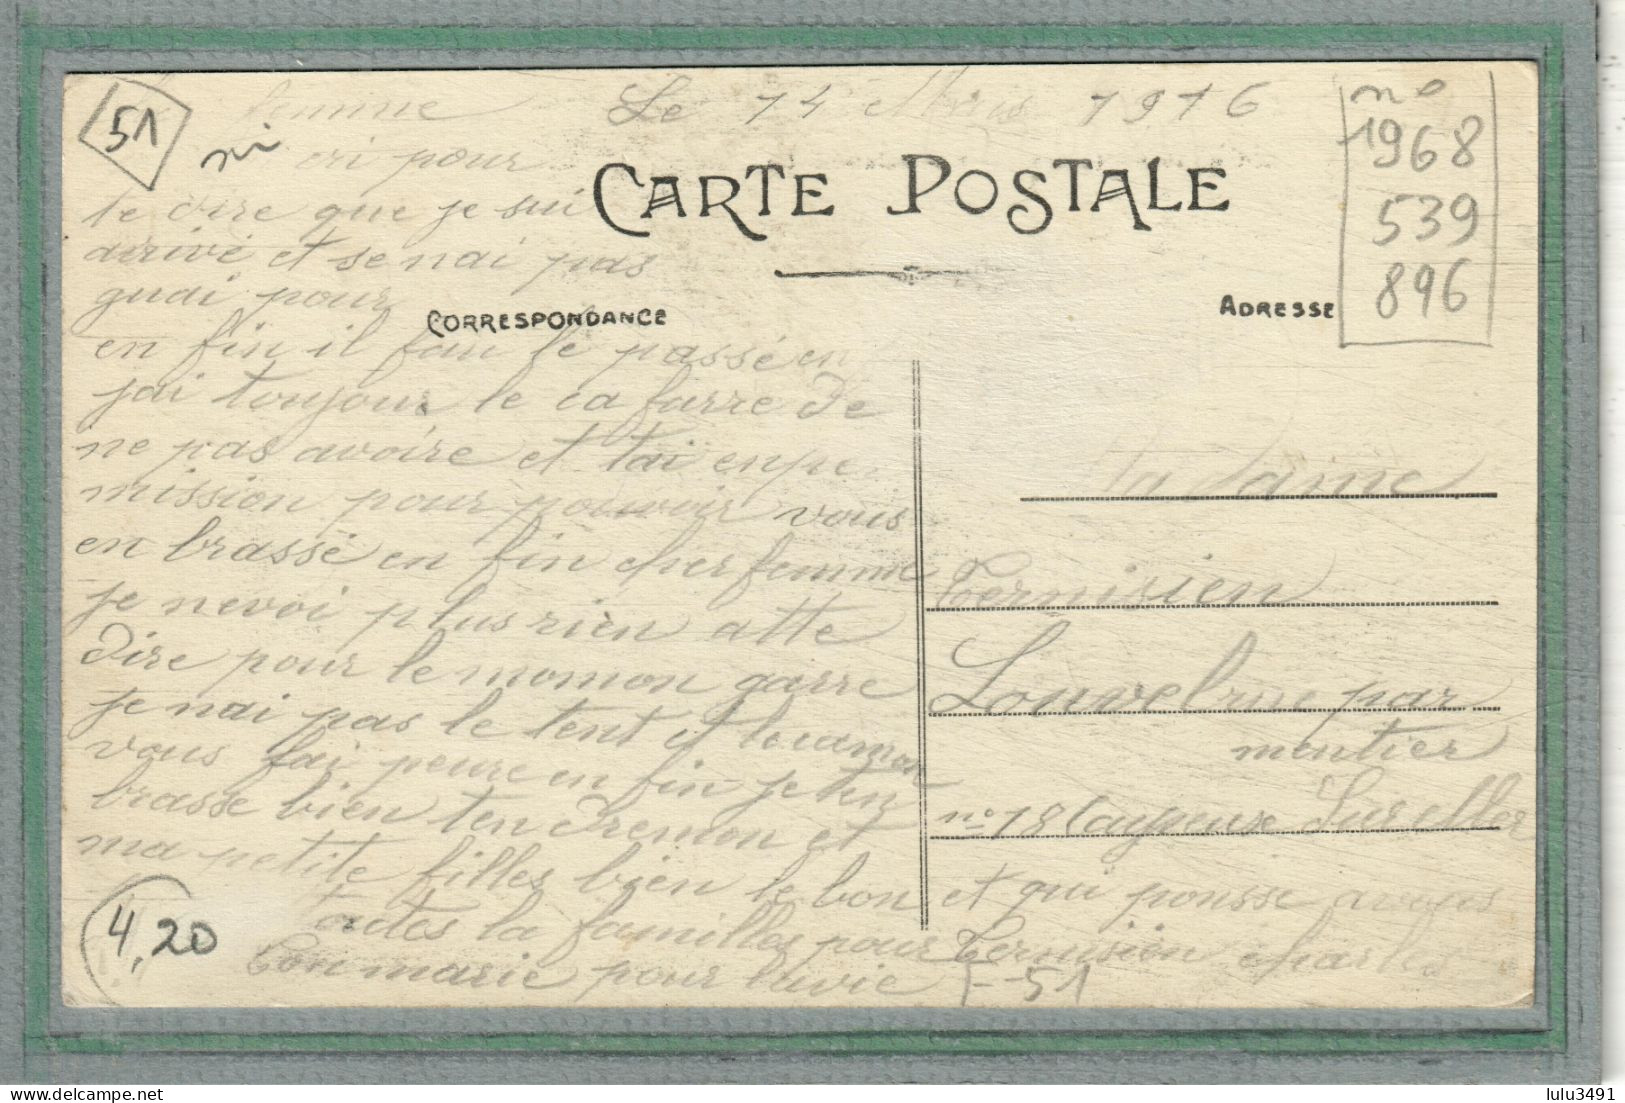 51
femme Le 14 Mars 1916
ni
pour
te dire que je sui
arrivé et se nai pas
guai pour
en fin il fau le passé en
jai toujour le ca farre de
ne pas avoire et tai enpe
mission pour pouvoir vous
en brassé en fin cher femme
je nevoi plus rien atte
dire pour le momon garre
je nai pas le tent et le camon
vous fai peure en fin je ten
brasse bien ten dremon et
ma petite filles bien le bon
actes la familles pour
ton marie pour lavie
CARTE POSTALE
CORRESPONDANCE
ADRESSE
no
1968
539
896
Madame
Ternisien
Louvel rue par
mentier
no 18 Cayeux Sur Mer
et qui pousse avous
Ternisien charles
51
4,20
lulu3491